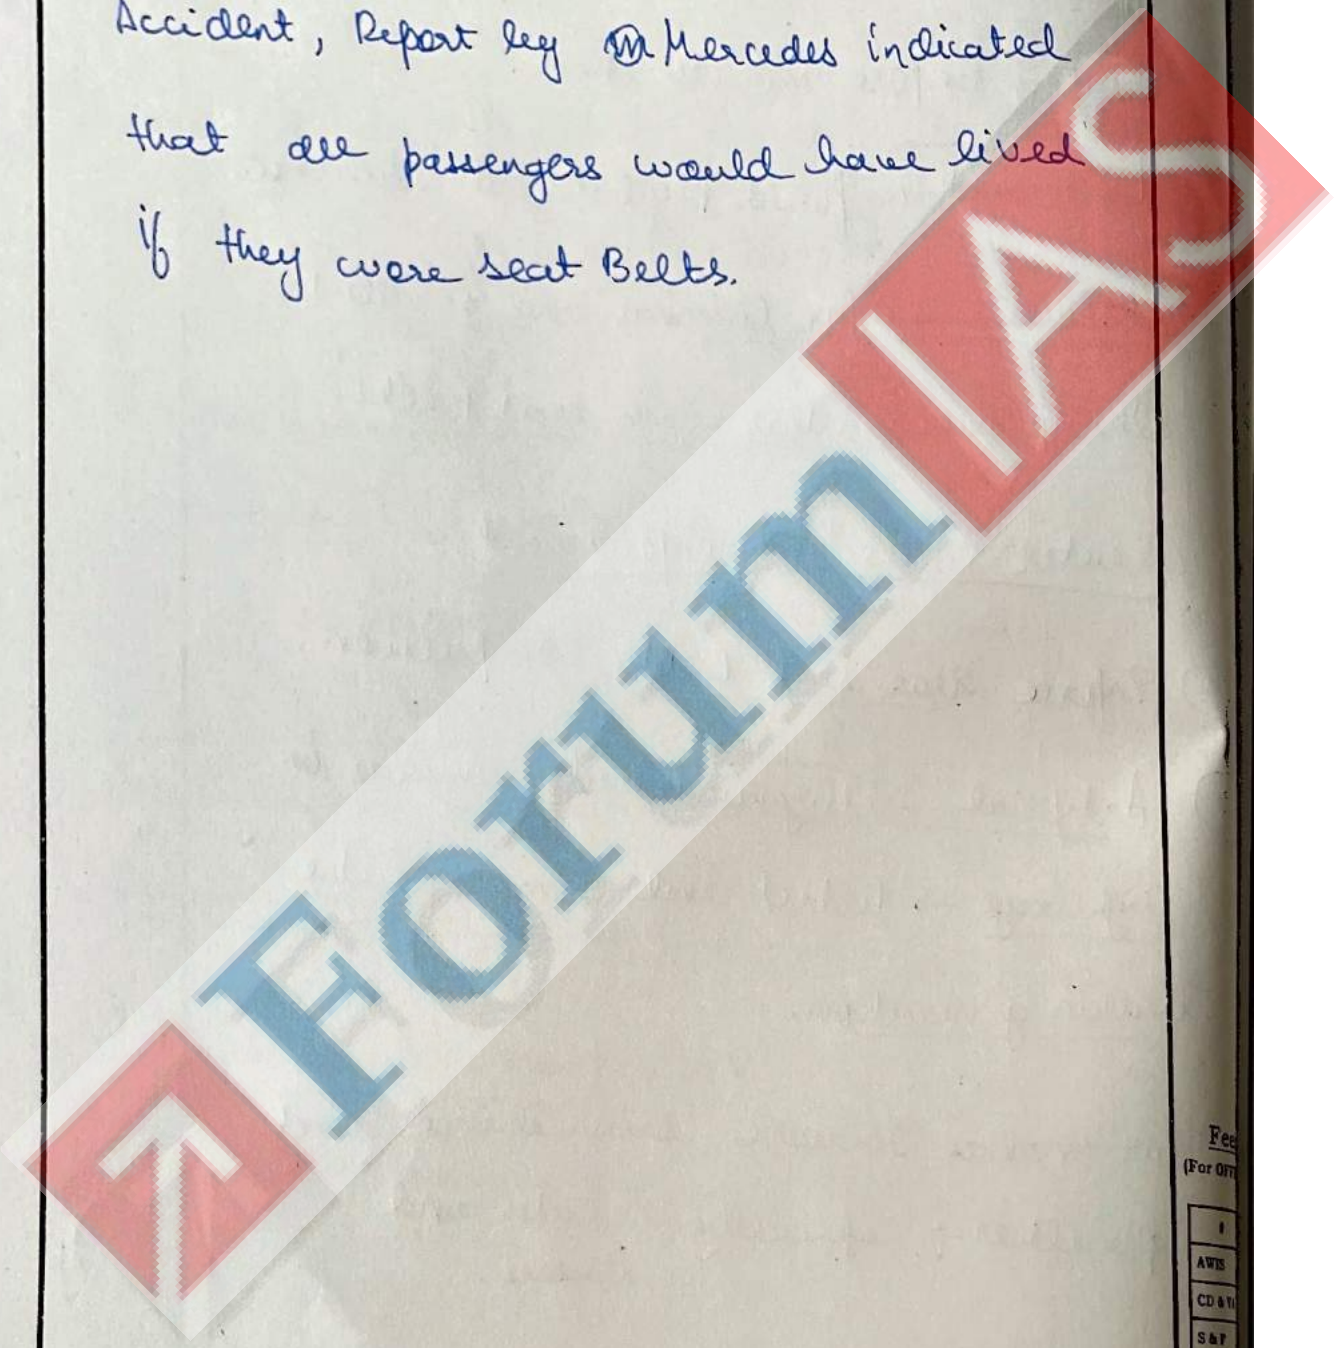 Accident, Report by Mercedes indicated
that all passengers would have lived
if they wore seat Belts.
Forum IAS
Fee
(For OFF
AWIS
CD & V
S & P